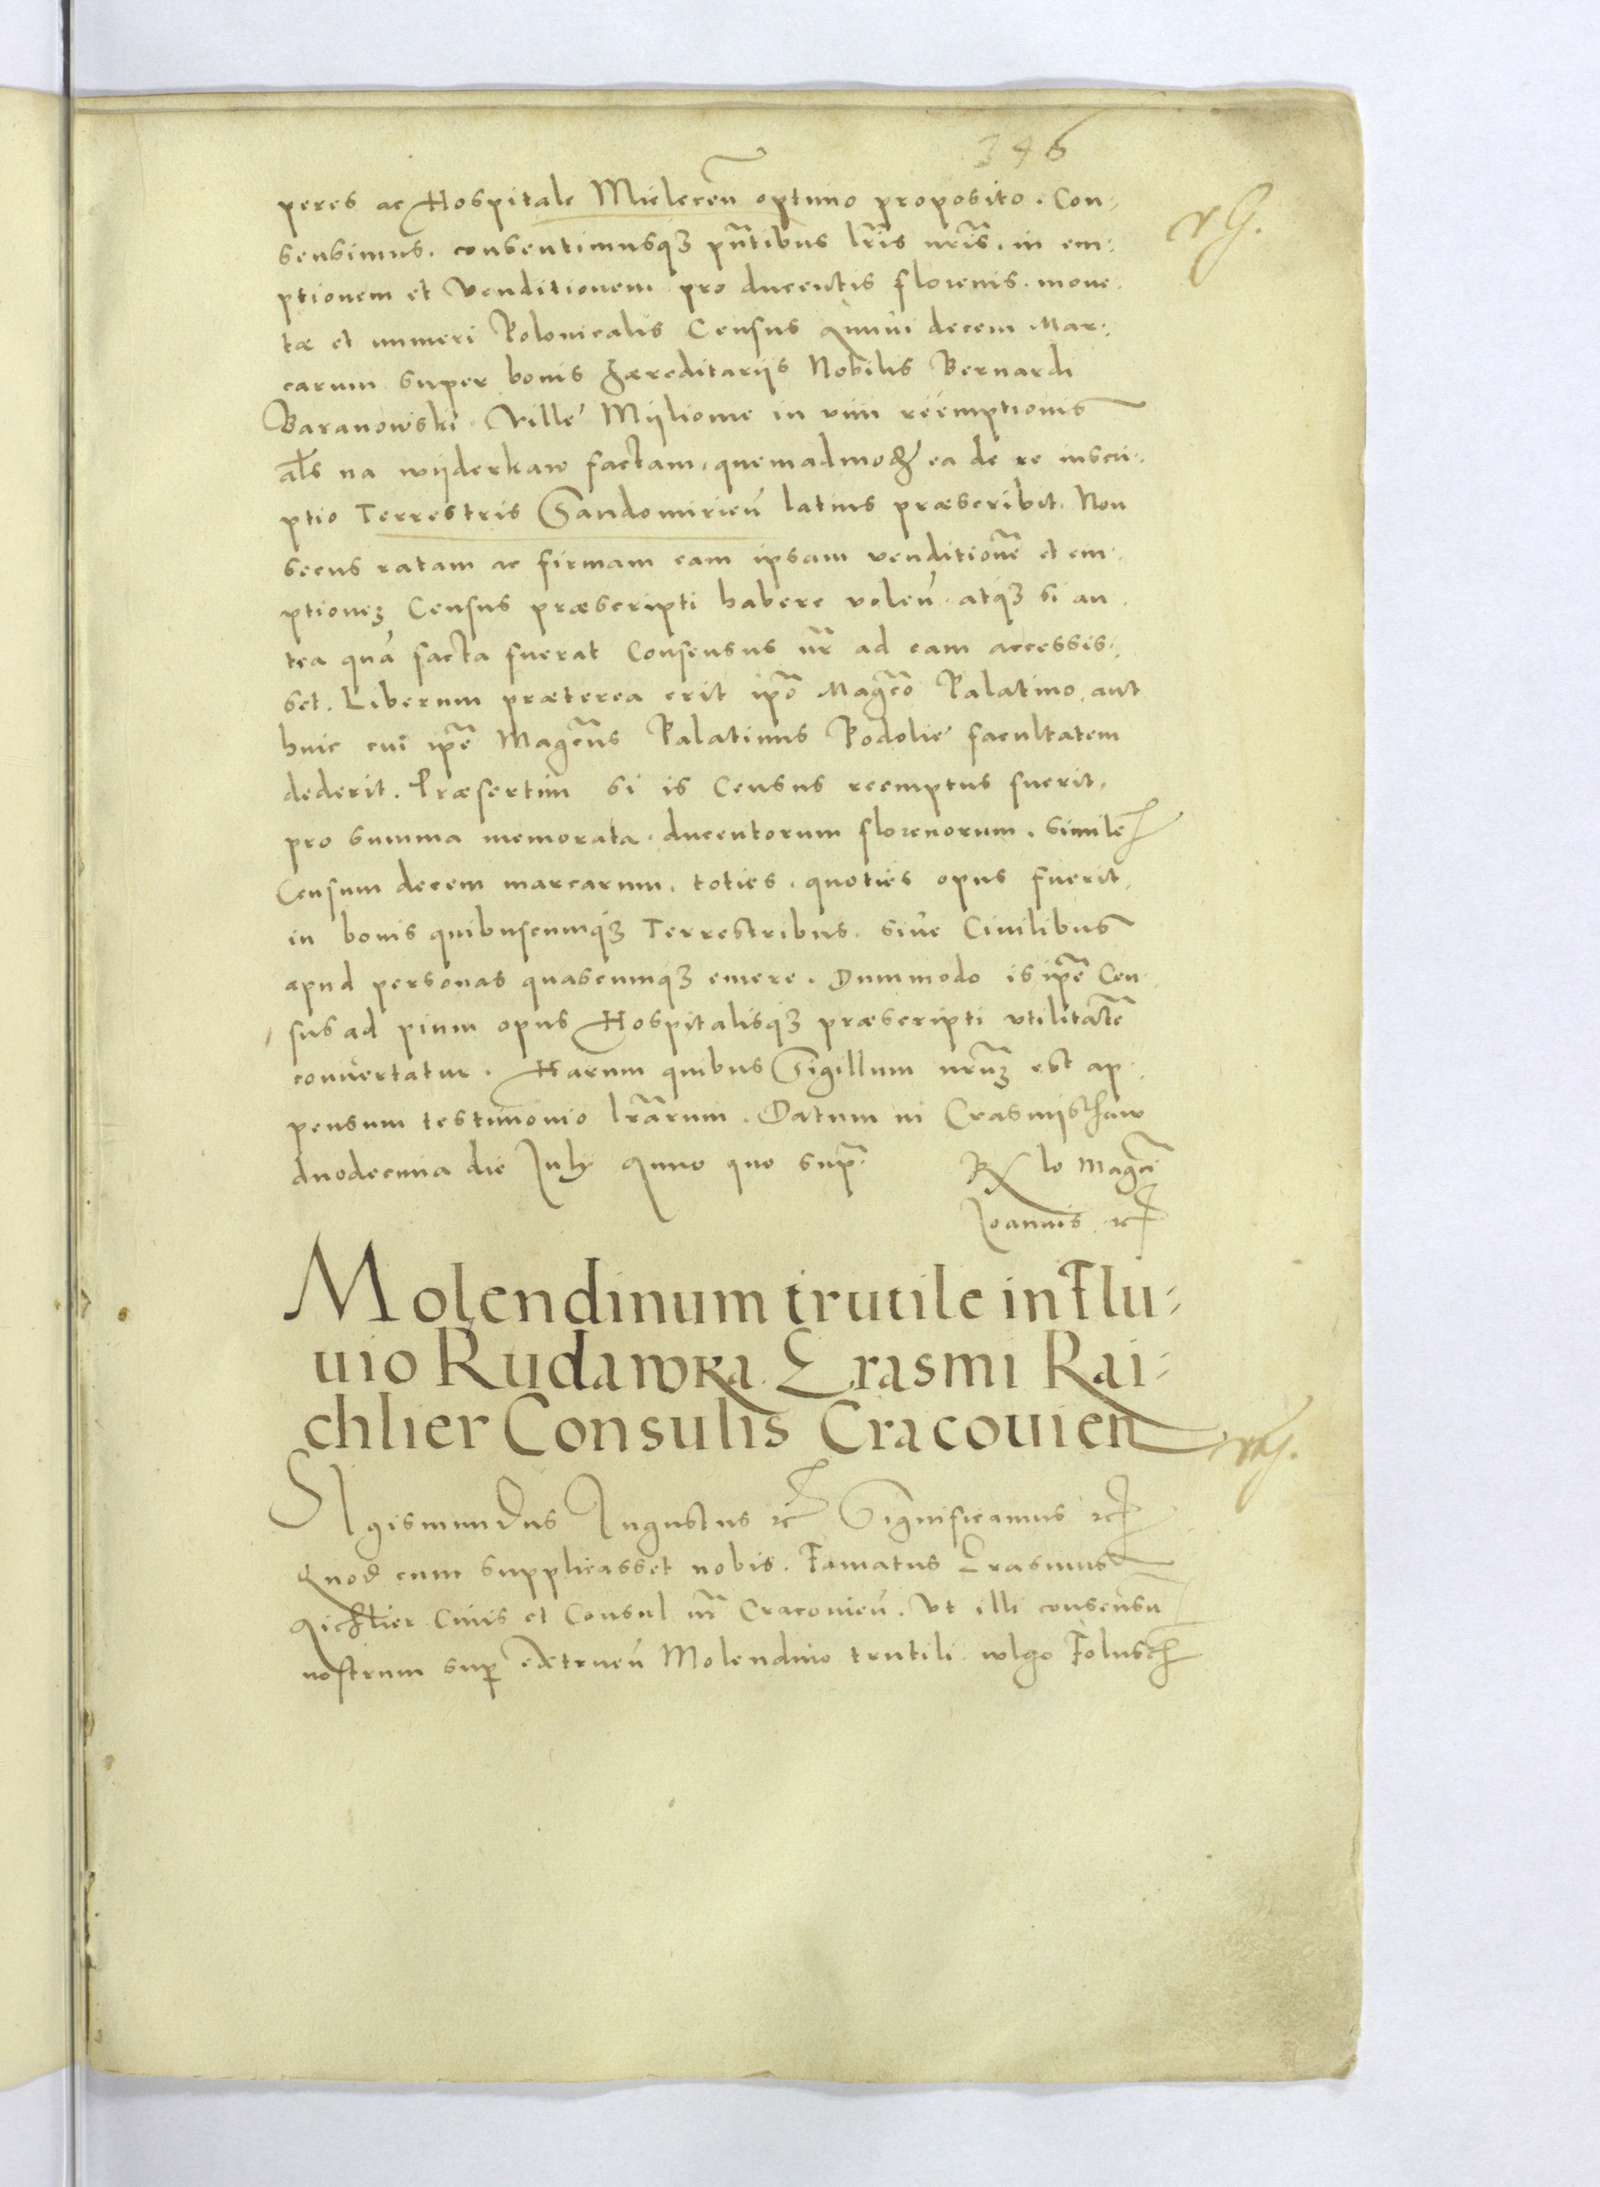 346
peres ac Hospitale Mielecen̄ optimo proposito. Con,
sensimus. consentimusqꝫ pn̄tibus lr̄is nr̄is. in em,
ptionem et venditionem pro ducentis florenis. mone,
tæ et numeri Polonicalis Census annui decem Mar,
carum super bonis hæreditariis Nobilis Bernardi
Baranowski. Ville Myliome in vim reemptionis
al̄s na wyderkaw factam, quemadmodꝫ ea de re inscri,
ptio Terrestris Sandomirien̄ latius præscribit. Non
secus ratam ac firmam eam ipsam venditionē et em,
ptioneꝫ Census præscripti habere volen̄. atqꝫ si an,
tea quā facta fuerat Consensus nr̄ ad eam accessis,
set. Liberum præterea erit ip̄o Magc̄o Palatino, aut
huic cui ip̄e Magc̄us Palatinus Podolie facultatem
dederit. Præsertim si is Census reemptus fuerit,
pro summa memorata. ducentorum florenorum. simile
Censum decem marcarum. toties. quoties opus fuerit,
in bonis quibuscumqꝫ Terrestribus. sive Civilibus
apud personas quascumqꝫ emere. Dummodo is ip̄e Cen,
sus ad pium opus Hospitalisqꝫ præscripti utilitatē
convertatur. Harum quibus Sigillum nr̄uꝫ est ap,
pensum testimonio lr̄arum. Datum in Crasnistaw
duodecima die July Anno quo supr̄. Rx lo Magc̄i
Joannis etc
Molendinum trutile in Flu,
uio Rudawka Erasmi Rai,
chlier Consulis Cracouien
Sigismundus Augustus etc Significamus etc
Quod cum supplicasset nobis. Famatus Erasmus
Aichler Civis et Consul nr̄ Cracovien̄. Ut illi consensu
nostrum sup extruen̄ Molendino trutili. wlgo Folusch